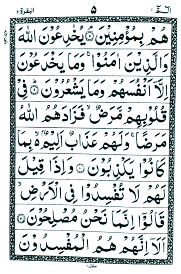 البقرة ٢ ٥ الٓمّٓ ١
هُمْ بِمُؤْمِنِيْنَ ۘ يُخٰدِعُوْنَ اللّٰهَ
وَالَّذِيْنَ اٰمَنُوْا ۚ وَمَا يَخْدَعُوْنَ
اِلَّاۤ اَنْفُسَهُمْ وَمَا يَشْعُرُوْنَ ؕ فِيْ
قُلُوْبِهِمْ مَّرَضٌ ۙ فَزَادَهُمُ اللّٰهُ
مَرَضًا ۚ وَلَهُمْ عَذَابٌ اَلِيْمٌۢ ۙ بِمَا
كَانُوْا يَكْذِبُوْنَ وَاِذَا قِيْلَ
لَهُمْ لَا تُفْسِدُوْا فِى الْاَرْضِ ۙ
قَالُوْۤا اِنَّمَا نَحْنُ مُصْلِحُوْنَ
اَلَاۤ اِنَّهُمْ هُمُ الْمُفْسِدُوْنَ